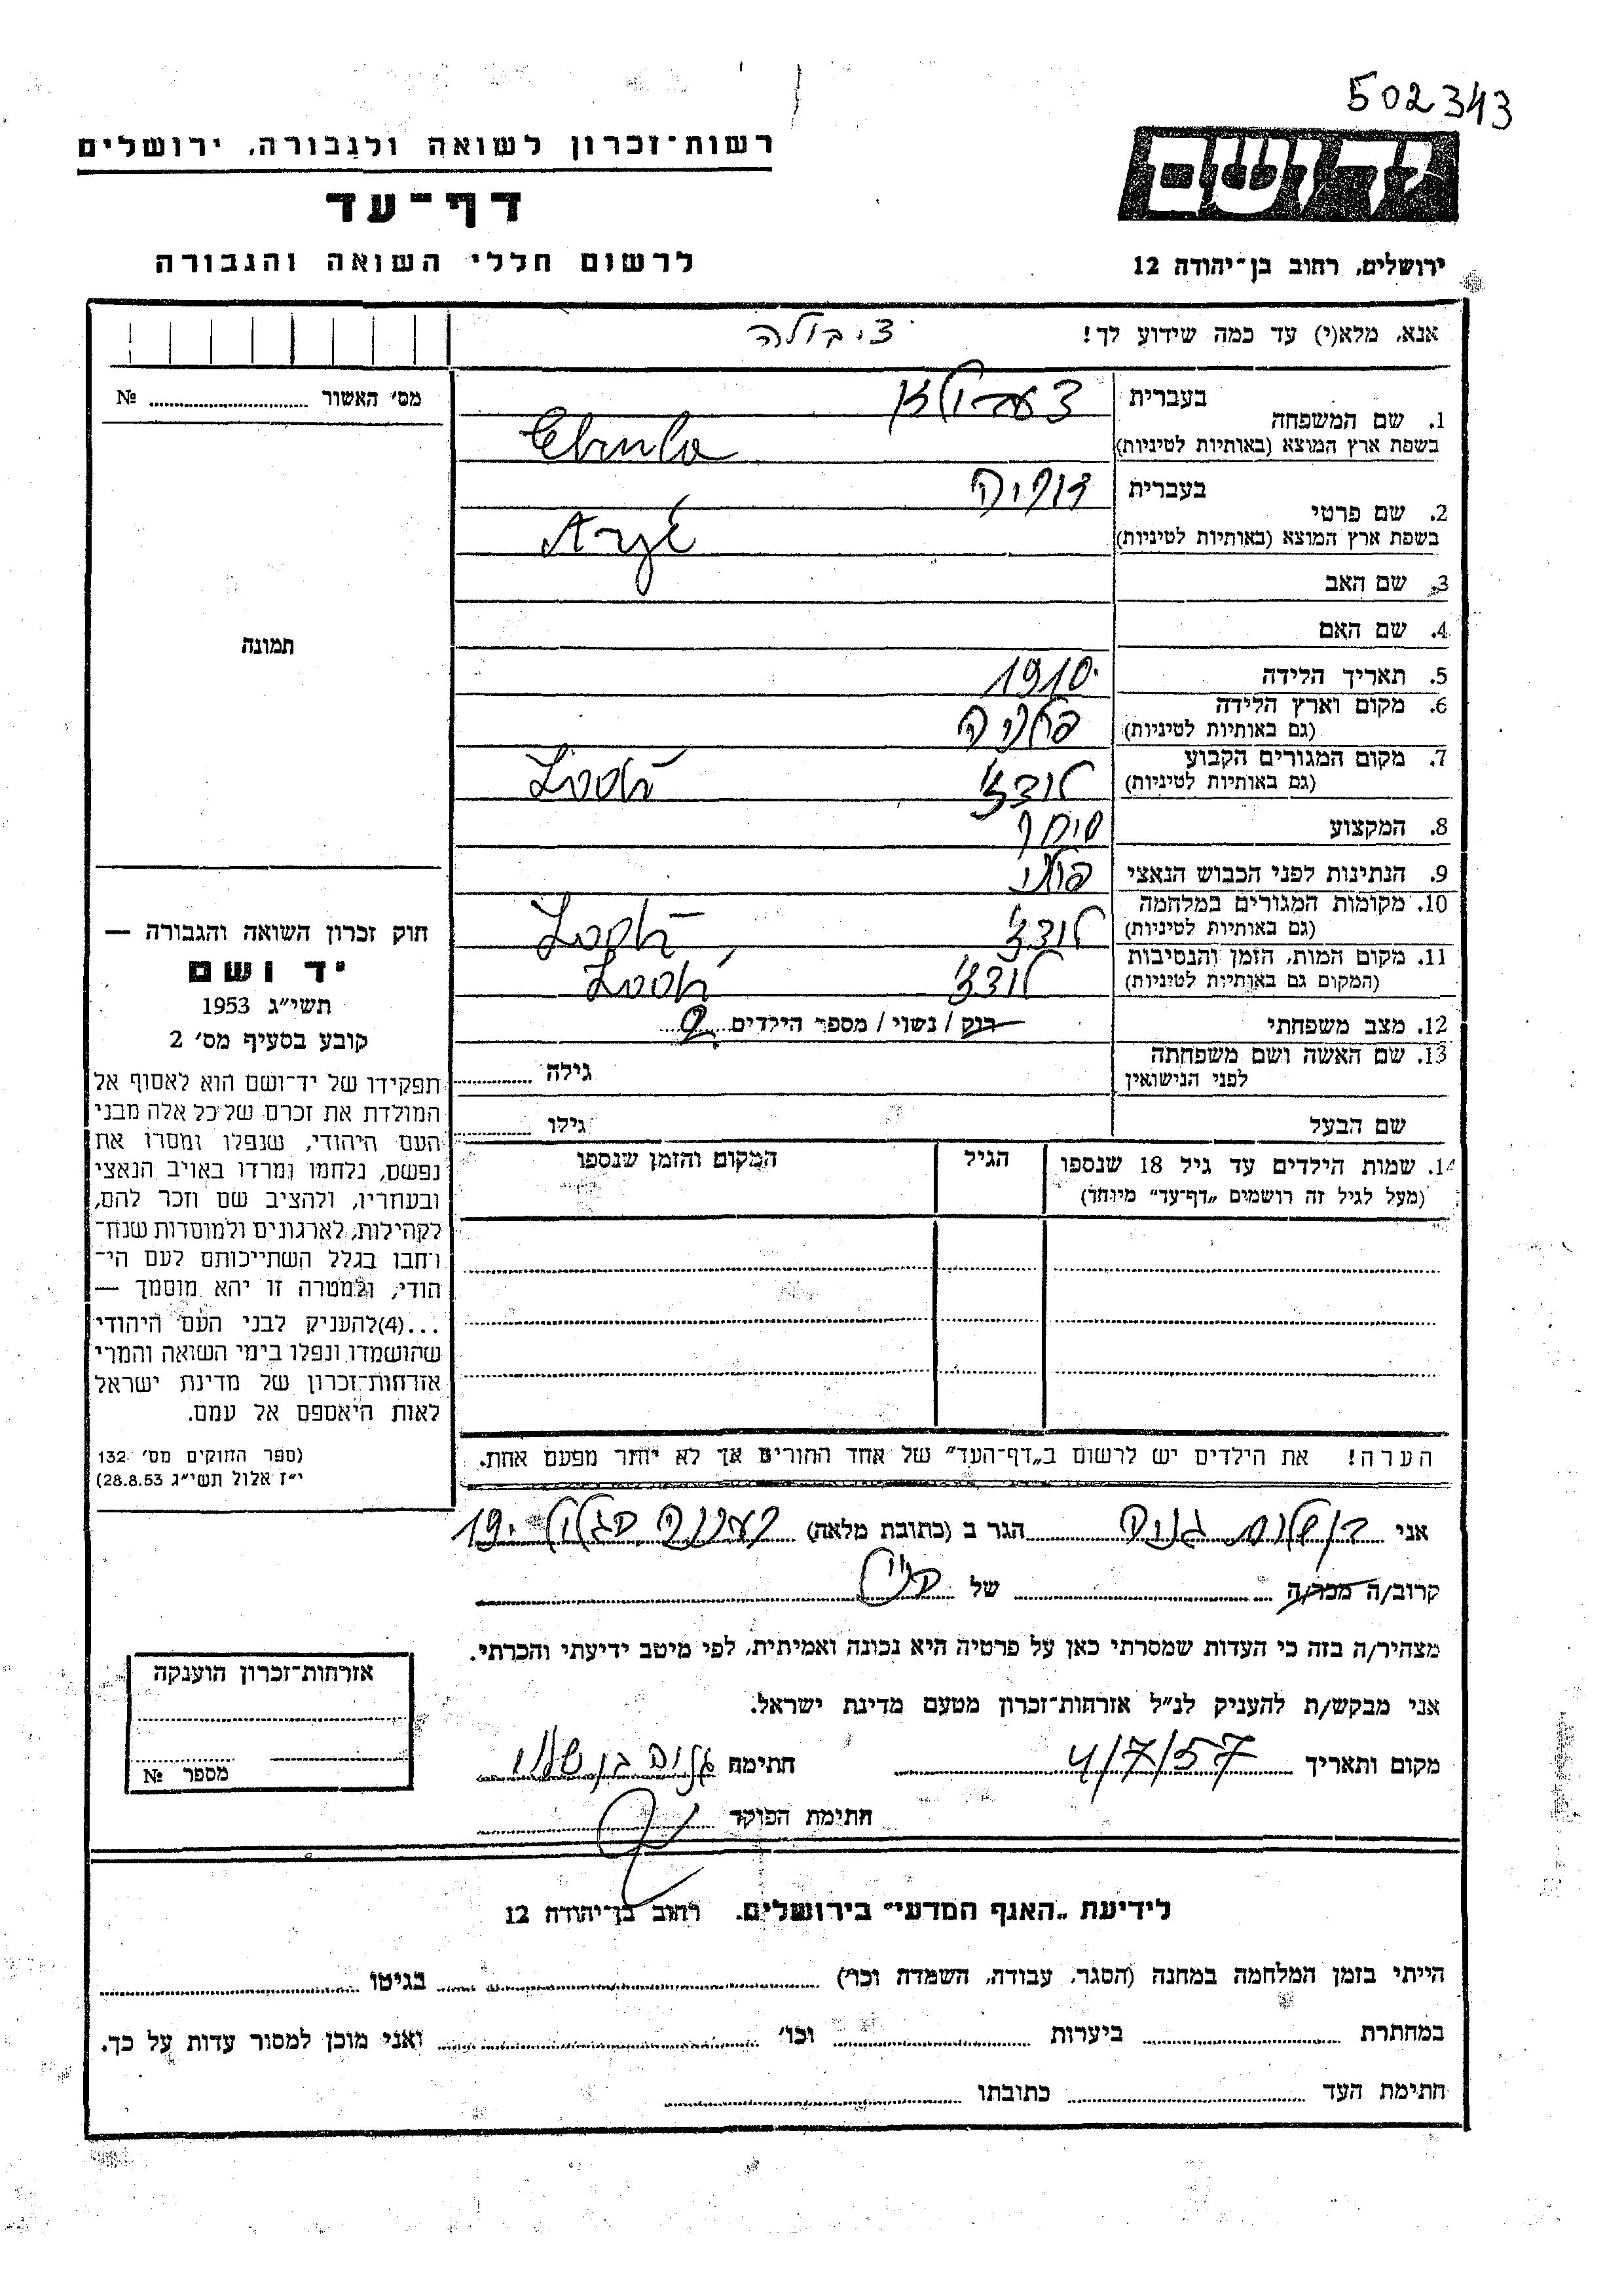 502343
רשות־זכרון לשואה ולגבורה, ירושלים
דף־עד
לרשום חללי השואה והגבורה
יד ושם
ירושלים, רחוב בן־יהודה 12
אנא, מלא(י) עד כמה שידוע לך!
ציבולה
מס' האשור № 
1. שם המשפחה
בעברית
בשפת ארץ המוצא (באותיות לטיניות)
2. שם פרטי
בעברית
בשפת ארץ המוצא (באותיות לטיניות)
3. שם האב
4. שם האם
5. תאריך הלידה 1910
6. מקום וארץ הלידה
(גם באותיות לטיניות)
7. מקום המגורים הקבוע
(גם באותיות לטיניות) לודז'
8. המקצוע סוחר
9. הנתינות לפני הכבוש הנאצי
10. מקומות המגורים במלחמה
(גם באותיות לטיניות) לודז'
11. מקום המות, הזמן והנסיבות
(המקום גם באותיות לטיניות) לודז'
12. מצב משפחתי רוק / נשוי / מספר הילדים 2
13. שם האשה ושם משפחתה
לפני הנישואין
גילה
שם הבעל
גילו
14. שמות הילדים עד גיל 18 שנספו
(מעל לגיל זה רושמים „דף־עד" מיוחד)
הגיל
המקום והזמן שנספו
הערה! את הילדים יש לרשום ב„דף־העד" של אחד ההורים אך לא יותר מפעם אחת.
תמונה
חוק זכרון השואה והגבורה —
יד ושם
תשי"ג 1953
קובע בסעיף מס' 2
תפקידו של יד־ושם הוא לאסוף אל
המולדת את זכרם של כל אלה מבני
העם היהודי, שנפלו ומסרו את
נפשם, נלחמו ומרדו באויב הנאצי
ובעוזריו, ולהציב שם וזכר להם,
לקהילות, לארגונים ולמוסדות שנח־
רחבו בגלל השתייכותם לעם הי־
הודי, ולמטרה זו יהא מוסמך —
...(4)להעניק לבני העם היהודי
שהושמדו ונפלו בימי השואה והמרי
אזרחות־זכרון של מדינת ישראל
לאות היאספם אל עמם.
(ספר החוקים מס' 132
י"ז אלול תשי"ג 28.8.53)
אני הגר ב (כתובת מלאה) 19
קרוב/ה מכר/ה של
מצהיר/ה בזה כי העדות שמסרתי כאן על פרטיה היא נכונה ואמיתית, לפי מיטב ידיעתי והכרתי.
אני מבקש/ת להעניק לנ"ל אזרחות־זכרון מטעם מדינת ישראל.
מקום ותאריך 4/7/57 חתימה
חתימת הפוקד
אזרחות־זכרון הוענקה
מספר №
לידיעת „האגף המדעי" בירושלים, רחוב בן־יהודה 12
הייתי בזמן המלחמה במחנה (הסגר, עבודה, השמדה וכו') בגיטו
במחתרת ביערות וכו' ואני מוכן למסור עדות על כך.
חתימת העד כתובתו